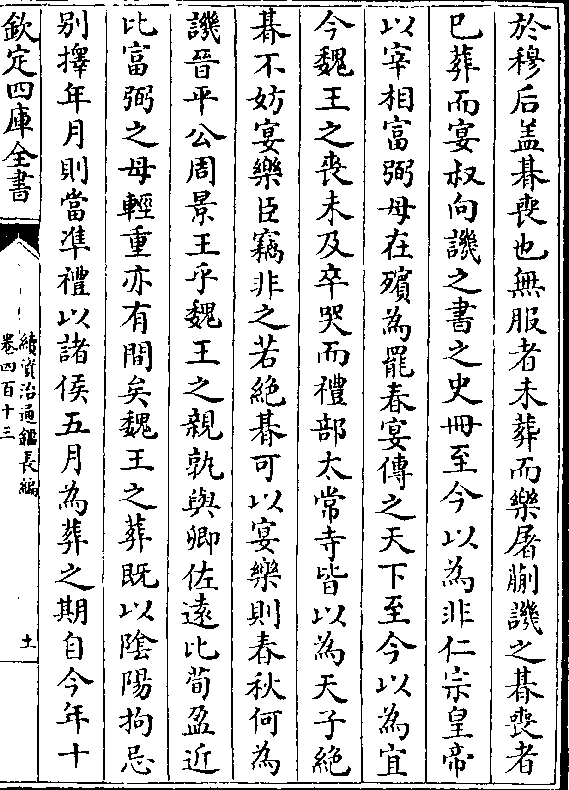 於穆后盖朞喪也無服者未葬而樂屠蒯譏之朞喪者
已葬而宴叔向譏之書之史冊至今以為非仁宗皇帝
以宰相富弼母在殯為罷春宴傳之天下至今以為宜
今魏王之喪未及卒哭而禮部太常寺皆以為天子絶
朞不妨宴樂臣竊非之若絶朞可以宴樂則春秋何為
譏晉平公周景王乎魏王之親孰與卿佐逺比荀盈近
比富弼之母輕重亦有間矣魏王之葬既以隂陽拘忌
别擇年月則當凖禮以諸侯五月為葬之期自今年十
欽定四庫全書
續資治通鑑長編
卷四百十三
土